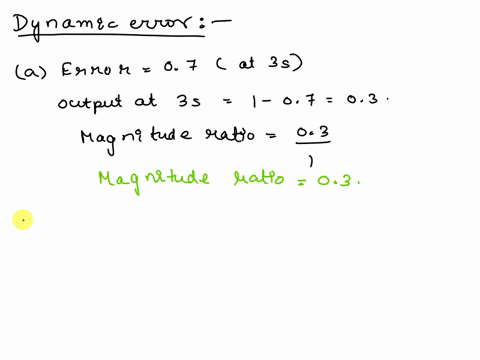 Dynamic error:-
(a) Error = 0.7 (at 3s)
output at 3s = 1 - 0.7 = 0.3.
Magnitude ratio = 0.3/1
Magnitude ratio = 0.3.